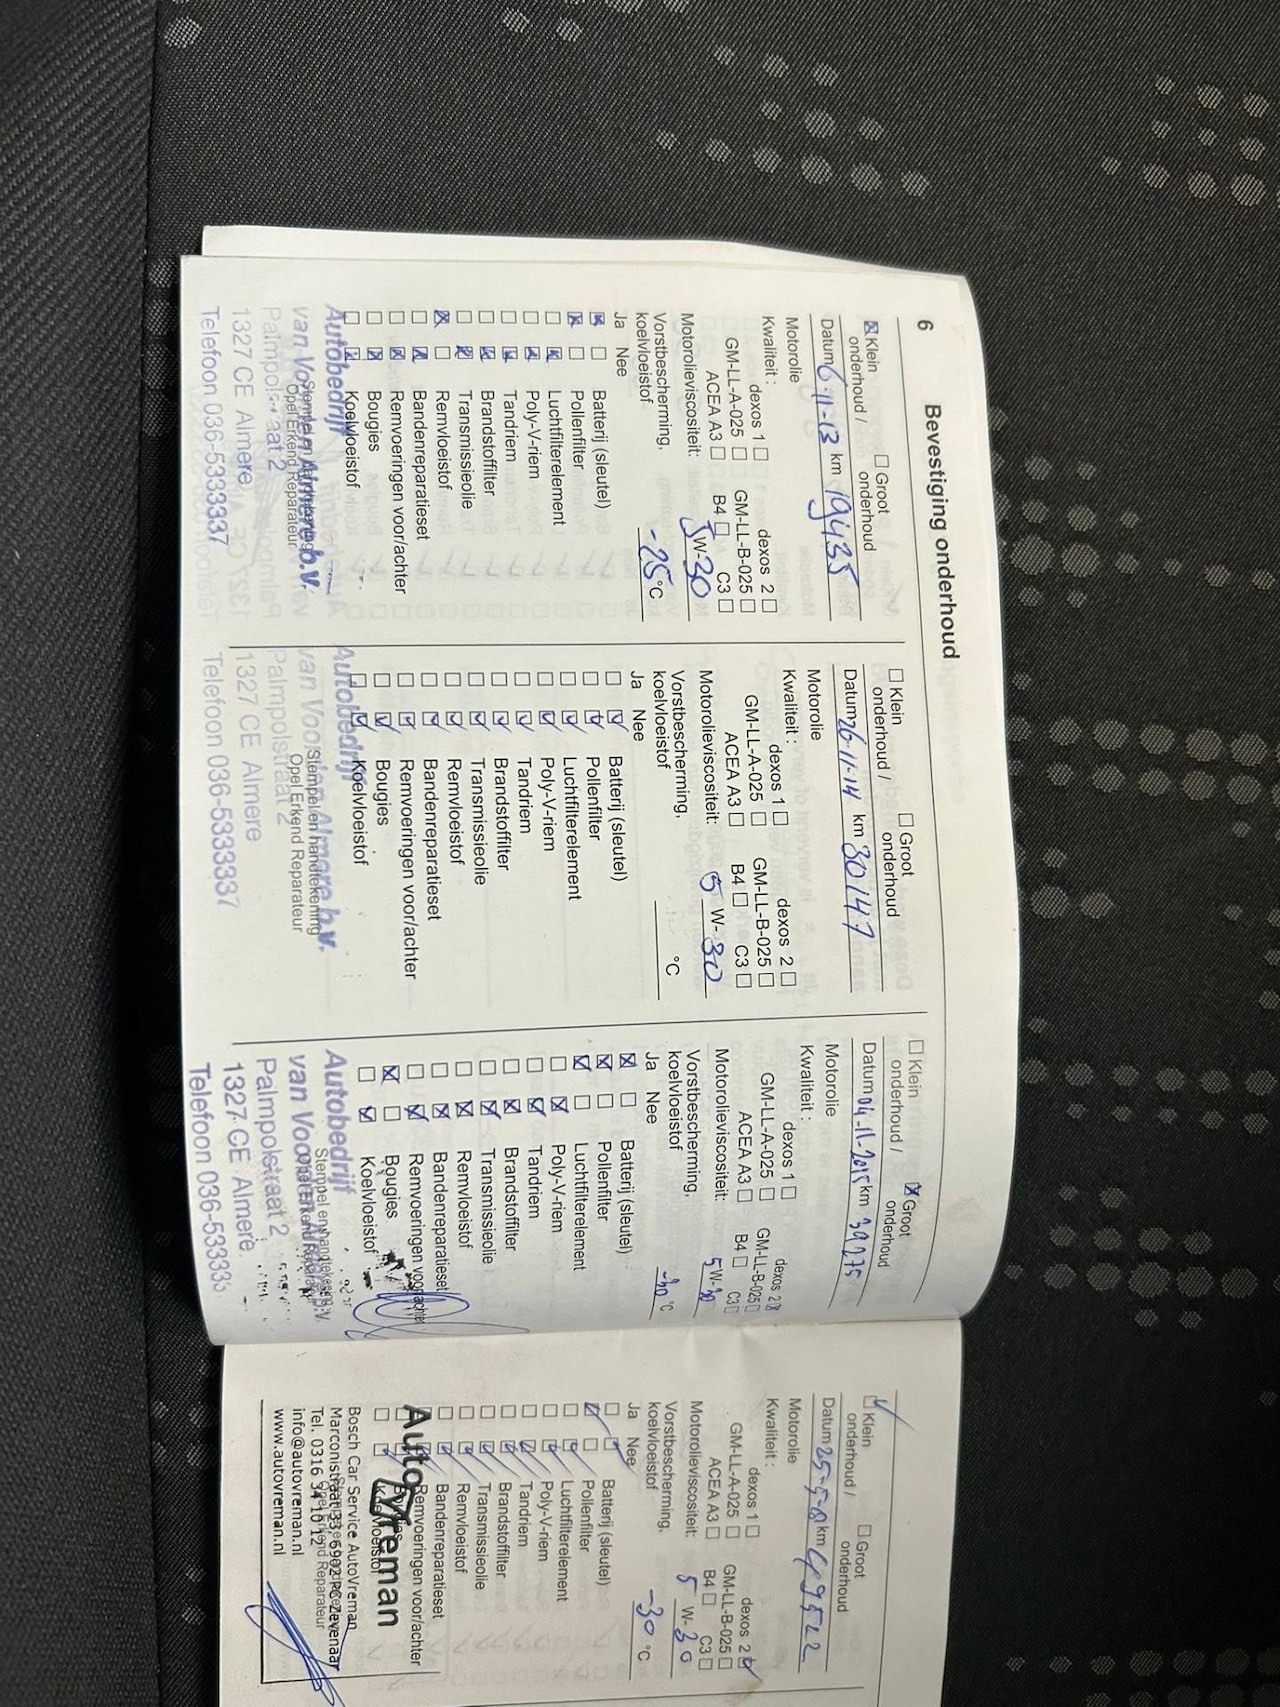 6
Bevestiging onderhoud
☒ Klein onderhoud / ☐ Groot onderhoud
Datum 6-11-13 km 19435
Motorolie
Kwaliteit : dexos 1 ☐ dexos 2 ☐
GM-LL-A-025 ☐ GM-LL-B-025 ☐
ACEA A3 ☐ B4 ☐ C3 ☐
Motorolieviscositeit: 5W-30
Vorstbescherming,
koelvloeistof -25 °C
Ja Nee
☒ ☐ Batterij (sleutel)
☒ ☐ Pollenfilter
☐ ☒ Luchtfilterelement
☐ ☒ Poly-V-riem
☐ ☒ Tandriem
☐ ☒ Brandstoffilter
☐ ☒ Transmissieolie
☒ ☐ Remvloeistof
☐ ☒ Bandenreparatieset
☐ ☒ Remvoeringen voor/achter
☐ ☒ Bougies
☐ ☒ Koelvloeistof
Autobedrijf
van Voorden Almere b.V.
Opel Erkend Reparateur
Palmpolstraat 2
1327 CE Almere
Telefoon 036-5333337
☐ Klein onderhoud / ☐ Groot onderhoud
Datum 26-11-14 km 30147
Motorolie
Kwaliteit : dexos 1 ☐ dexos 2 ☐
GM-LL-A-025 ☐ GM-LL-B-025 ☐
ACEA A3 ☐ B4 ☐ C3 ☐
Motorolieviscositeit: 5 W-30
Vorstbescherming,
koelvloeistof °C
Ja Nee
☐ ☑ Batterij (sleutel)
☐ ☑ Pollenfilter
☐ ☑ Luchtfilterelement
☐ ☑ Poly-V-riem
☐ ☑ Tandriem
☐ ☑ Brandstoffilter
☐ ☑ Transmissieolie
☐ ☑ Remvloeistof
☐ ☑ Bandenreparatieset
☐ ☑ Remvoeringen voor/achter
☐ ☑ Bougies
☐ ☑ Koelvloeistof
Autobedrijf
van Voorden Almere b.V.
Stempel en handtekening
Opel Erkend Reparateur
Palmpolstraat 2
1327 CE Almere
Telefoon 036-5333337
☐ Klein onderhoud / ☒ Groot onderhoud
Datum 04-11-2015 km 39275
Motorolie
Kwaliteit : dexos 1 ☐ dexos 2 ☒
GM-LL-A-025 ☐ GM-LL-B-025 ☐
ACEA A3 ☐ B4 ☐ C3 ☐
Motorolieviscositeit: 5W-30
Vorstbescherming,
koelvloeistof -30 °C
Ja Nee
☒ ☐ Batterij (sleutel)
☒ ☐ Pollenfilter
☒ ☐ Luchtfilterelement
☐ ☒ Poly-V-riem
☐ ☒ Tandriem
☐ ☒ Brandstoffilter
☐ ☒ Transmissieolie
☐ ☒ Remvloeistof
☐ ☒ Bandenreparatieset
☐ ☒ Remvoeringen voor/achter
☒ ☐ Bougies
☐ ☒ Koelvloeistof
Autobedrijf
Stempel en handtekening
van Voorden Almere b.V.
Palmpolstraat 2
1327 CE Almere
Telefoon 036-53333
☑ Klein onderhoud / ☐ Groot onderhoud
Datum km 49522
Motorolie
Kwaliteit : dexos 1 ☐ dexos 2 ☑
GM-LL-A-025 ☐ GM-LL-B-025 ☐
ACEA A3 ☐ B4 ☐ C3 ☐
Motorolieviscositeit: 5 W-30
Vorstbescherming,
koelvloeistof -30 °C
Ja Nee
☐ ☑ Batterij (sleutel)
☑ ☐ Pollenfilter
☐ ☑ Luchtfilterelement
☐ ☑ Poly-V-riem
☐ ☑ Tandriem
☐ ☑ Brandstoffilter
☐ ☑ Transmissieolie
☐ ☑ Remvloeistof
☐ ☑ Bandenreparatieset
☐ ☑ Remvoeringen voor/achter
☐ ☑ Bougies
☐ ☑ Koelvloeistof
AutoVreman
Bosch Car Service AutoVreman
Marconistraat 33, 6902 PC Zevenaar
Tel. 0316 34 10 12
Opel Erkend Reparateur
info@autovreman.nl
www.autovreman.nl